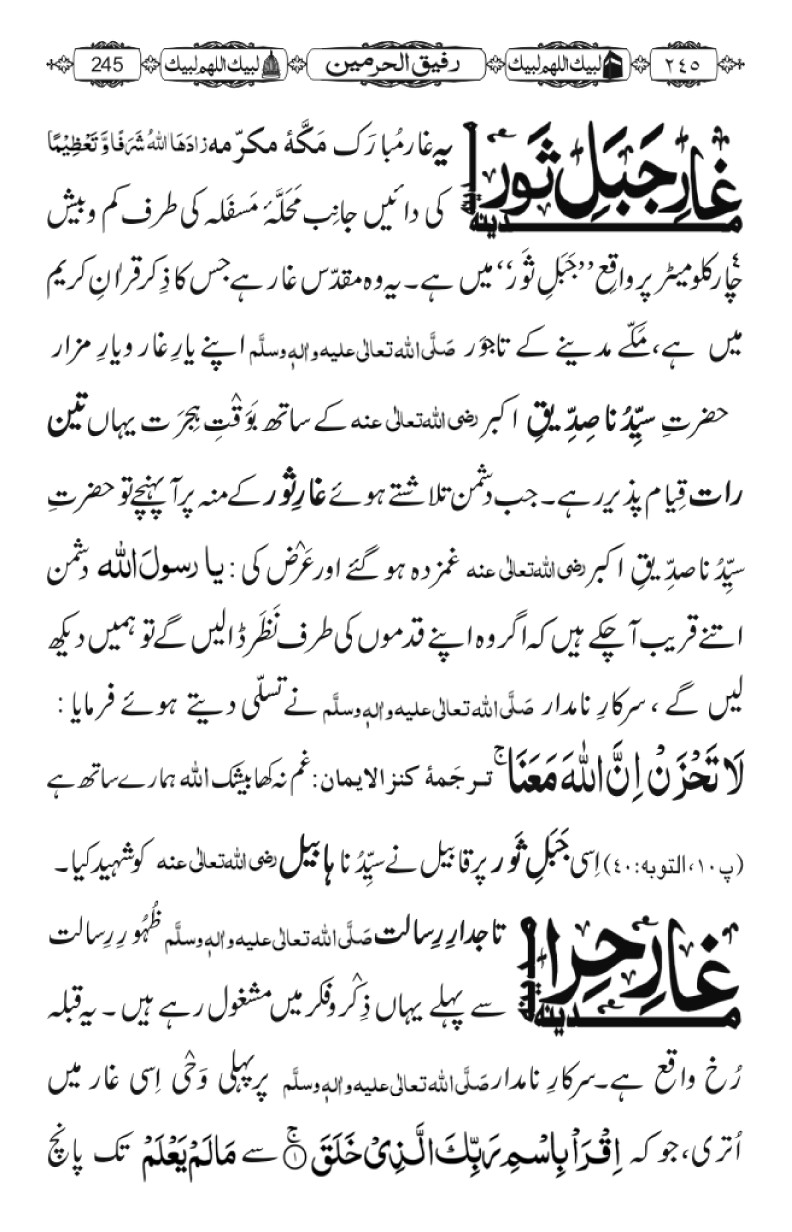 ٢٤٥ لبیک اللھم لبیک رفیق الحرمین لبیک اللھم لبیک 245
غارِ جَبَلِ ثَور یہ غارمُبارَک مَکَّۂ مکرّمہ زادَھَا اللہُ شَرَفًا وَّ تَعْظِیْمًا
مدینہ مدینہ کی دائیں جانِب مَحَلَّۂ مَسفَلہ کی طرف کم وبیش
چار کلومیٹر پر واقِع ’’جَبَلِ ثَور‘‘ میں ہے۔ یہ وہ مقدّس غار ہے جس کا ذِکر قراٰنِ کریم
میں ہے، مَکّے مدینے کے تاجْوَر صَلَّی اللہ تعالٰی علیہ واٰلہٖ وسلَّم اپنے یارِ غار و یارِ مزار
حضرتِ سیِّدُنا صِدِّیقِ اکبر رضی اللہ تعالٰی عنہ کے ساتھ بَوَقْتِ ہِجرَت یہاں تین
رات قِیام پذیر رہے۔ جب دشمن تلاشتے ہوئے غارِ ثور کے منہ پر آپہنچے تو حضرتِ
سیِّدُنا صدِّیقِ اکبر رضی اللہ تعالٰی عنہ غمزدہ ہوگئے اور عَرْض کی : یا رسولَ اللہ دشمن
اتنے قریب آچکے ہیں کہ اگر وہ اپنے قدموں کی طرف نَظَر ڈالیں گے تو ہمیں دیکھ
لیں گے ، سرکارِ نامدار صَلَّی اللہ تعالٰی علیہ واٰلہٖ وسلَّم نے تسلّی دیتے ہوئے فرمایا :
لَا تَحْزَنْ اِنَّ اللّٰهَ مَعَنَاۚ تـرجَمۂ کنز الایمان: غم نہ کھا بیشک اللہ ہمارے ساتھ ہے
(پ١٠، التوبہ:٤٠) اِسی جَبَلِ ثَور پر قابیل نے سیِّدُنا ہابیل رضی اللہ تعالٰی عنہ کو شہید کیا۔
غارِ حِرا تاجدارِ رِسالت صَلَّی اللہ تعالٰی علیہ واٰلہٖ وسلَّم ظُہُورِ رِسالت
مدینہ مدینہ سے پہلے یہاں ذِکْر و فکر میں مشغول رہے ہیں ۔ یہ قبلہ
رُخ واقع ہے۔ سرکارِ نامدار صَلَّی اللہ تعالٰی علیہ واٰلہٖ وسلَّم پر پہلی وَحْی اِسی غار میں
اُتری، جو کہ اِقْرَاْ بِاسْمِ رَبِّكَ الَّذِیْ خَلَقَۚ۝١ سے مَا لَمْ یَعْلَمْ تک پانچ